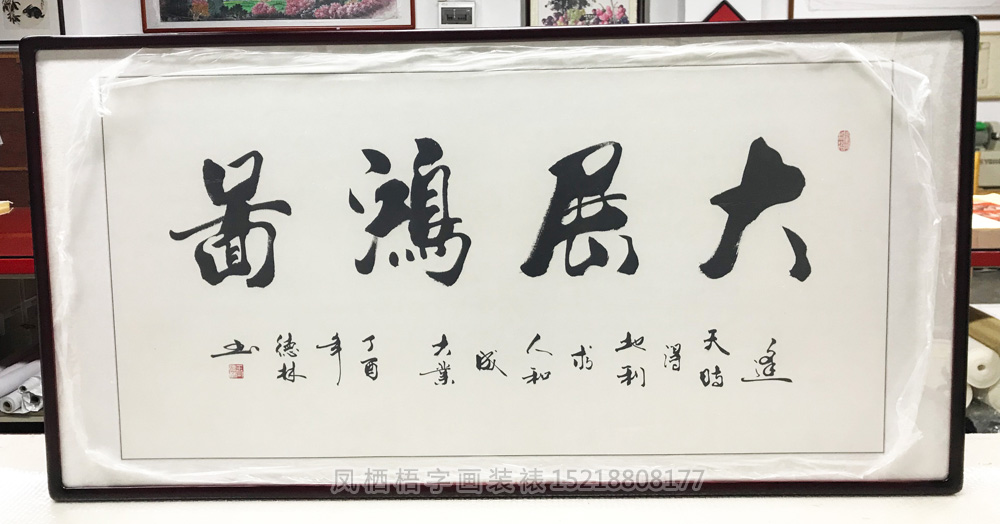 大展鸿啚
逢天時得地利求人和成大業丁酉年德林书
凤栖梧字画装裱15218808177